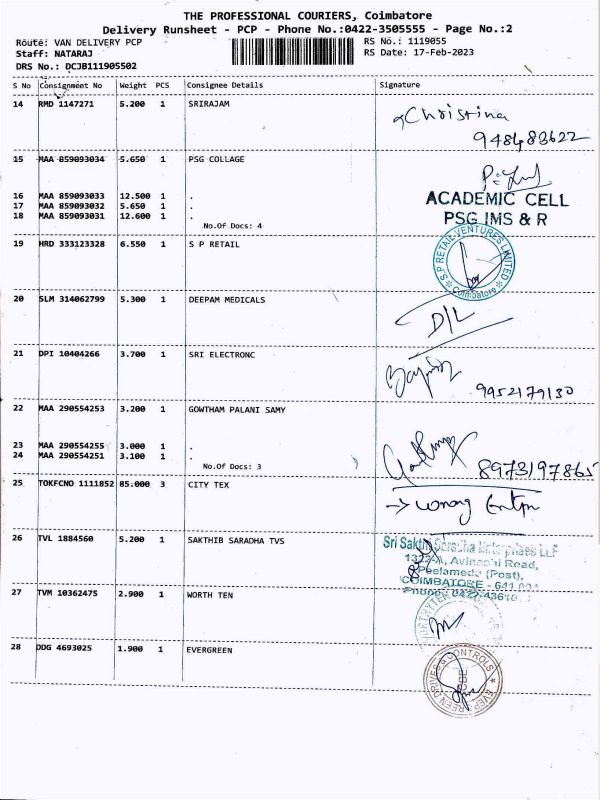 THE PROFESSIONAL COURIERS, Coimbatore
Delivery Runsheet - PCP - Phone No.:0422-3505555 - Page No.:2
Route: VAN DELIVERY PCP RS No.: 1119055
Staff: NATARAJ RS Date: 17-Feb-2023
DRS No.: DCJB111905502
S No Consignment No Weight PCS Consignee Details Signature
14 RMD 1147271 5.200 1 SRIRAJAM
Christina
948483622
15 MAA 859093034 5.650 1 PSG COLLAGE
16 MAA 859093033 12.500 1 .
17 MAA 859093032 5.650 1 .
18 MAA 859093031 12.600 1 .
No.Of Docs: 4
ACADEMIC CELL
PSG IMS & R
19 HRD 333123328 6.550 1 S P RETAIL
S.P RETAIL VENTURES LIMITED
Coimbatore
20 SLM 314062799 5.300 1 DEEPAM MEDICALS
D/L
21 DPI 10404266 3.700 1 SRI ELECTRONC
9952179130
22 MAA 290554253 3.200 1 GOWTHAM PALANI SAMY
23 MAA 290554255 3.000 1 .
24 MAA 290554251 3.100 1 .
No.Of Docs: 3
8973197865
25 TOKFCNO 1111852 85.000 3 CITY TEX
→ wrong
26 TVL 1884560 5.200 1 SAKTHIB SARADHA TVS
Sri Sakthi Saradha Enterprises LLP
Avinashi Road,
Peelamedu (Post),
COIMBATORE - 641
27 TVM 10362475 2.900 1 WORTH TEN
28 DDG 4693025 1.900 1 EVERGREEN
EVERGREEN DRIVES & CONTROLS
CBE